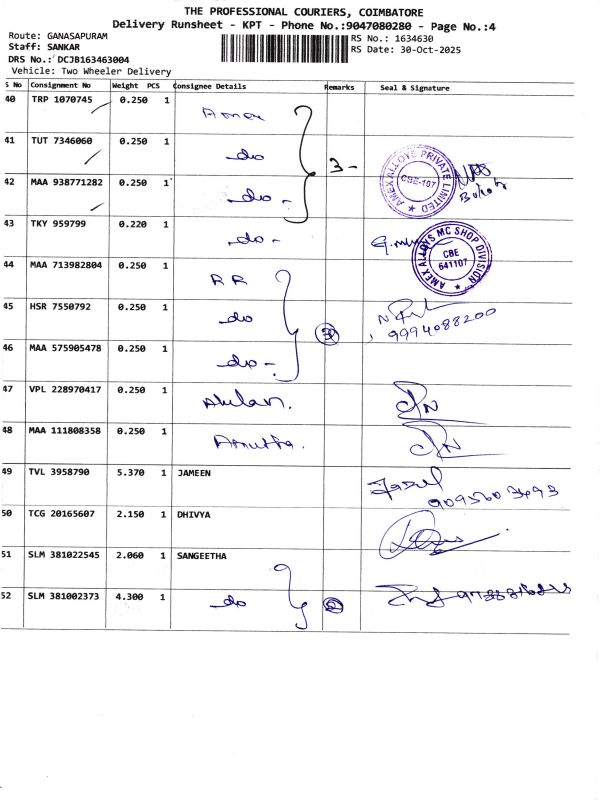 THE PROFESSIONAL COURIERS, COIMBATORE
Delivery Runsheet - KPT - Phone No.:9047080280 - Page No.:4
Route: GANASAPURAM
RS No.: 1634630
Staff: SANKAR
RS Date: 30-Oct-2025
DRS No.: DCJB163463004
Vehicle: Two Wheeler Delivery
S No Consignment No Weight PCS Consignee Details Remarks Seal & Signature
40 TRP 1070745 0.250 1 Amex
41 TUT 7346060 0.250 1 do 3 -
AMEX ALLOYS PRIVATE LIMITED
CBE-107
42 MAA 938771282 0.250 1 do -
43 TKY 959799 0.220 1 do -
AMEX ALLOYS MC SHOP DIVISION
CBE
641107
44 MAA 713982804 0.250 1 RR
45 HSR 7550792 0.250 1 do 3
9994088200
46 MAA 575905478 0.250 1 do -
47 VPL 228970417 0.250 1 Ahilan.
48 MAA 111808358 0.250 1 Amutha.
49 TVL 3958790 5.370 1 JAMEEN
9095603493
50 TCG 20165607 2.150 1 DHIVYA
51 SLM 381022545 2.060 1 SANGEETHA
52 SLM 381002373 4.300 1 do 2